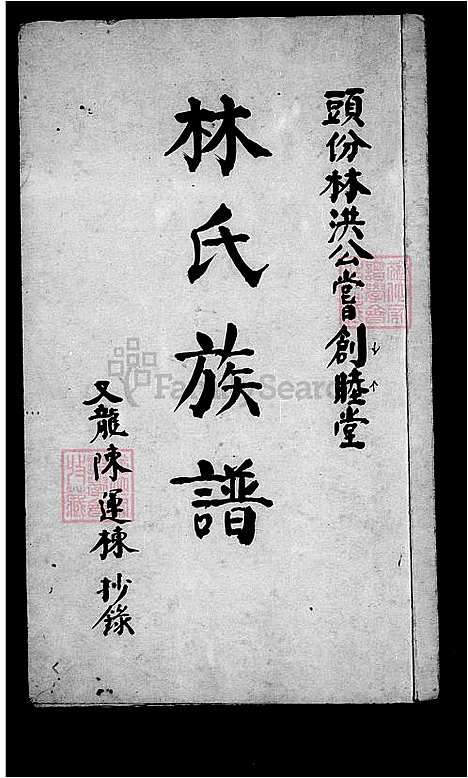 頭份林洪公嘗創睦堂
林氏族譜
又龍陳運棟抄錄
FamilySearch